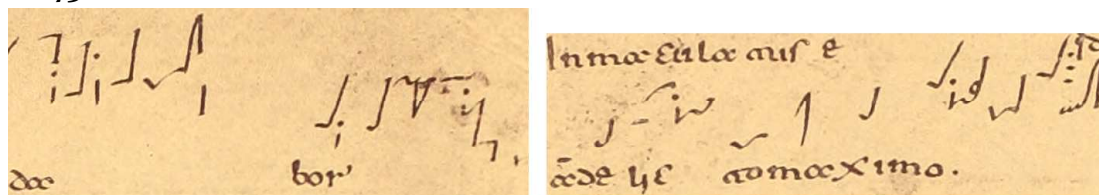 da bor
Inmaculatus e
a de lic tomaximo.